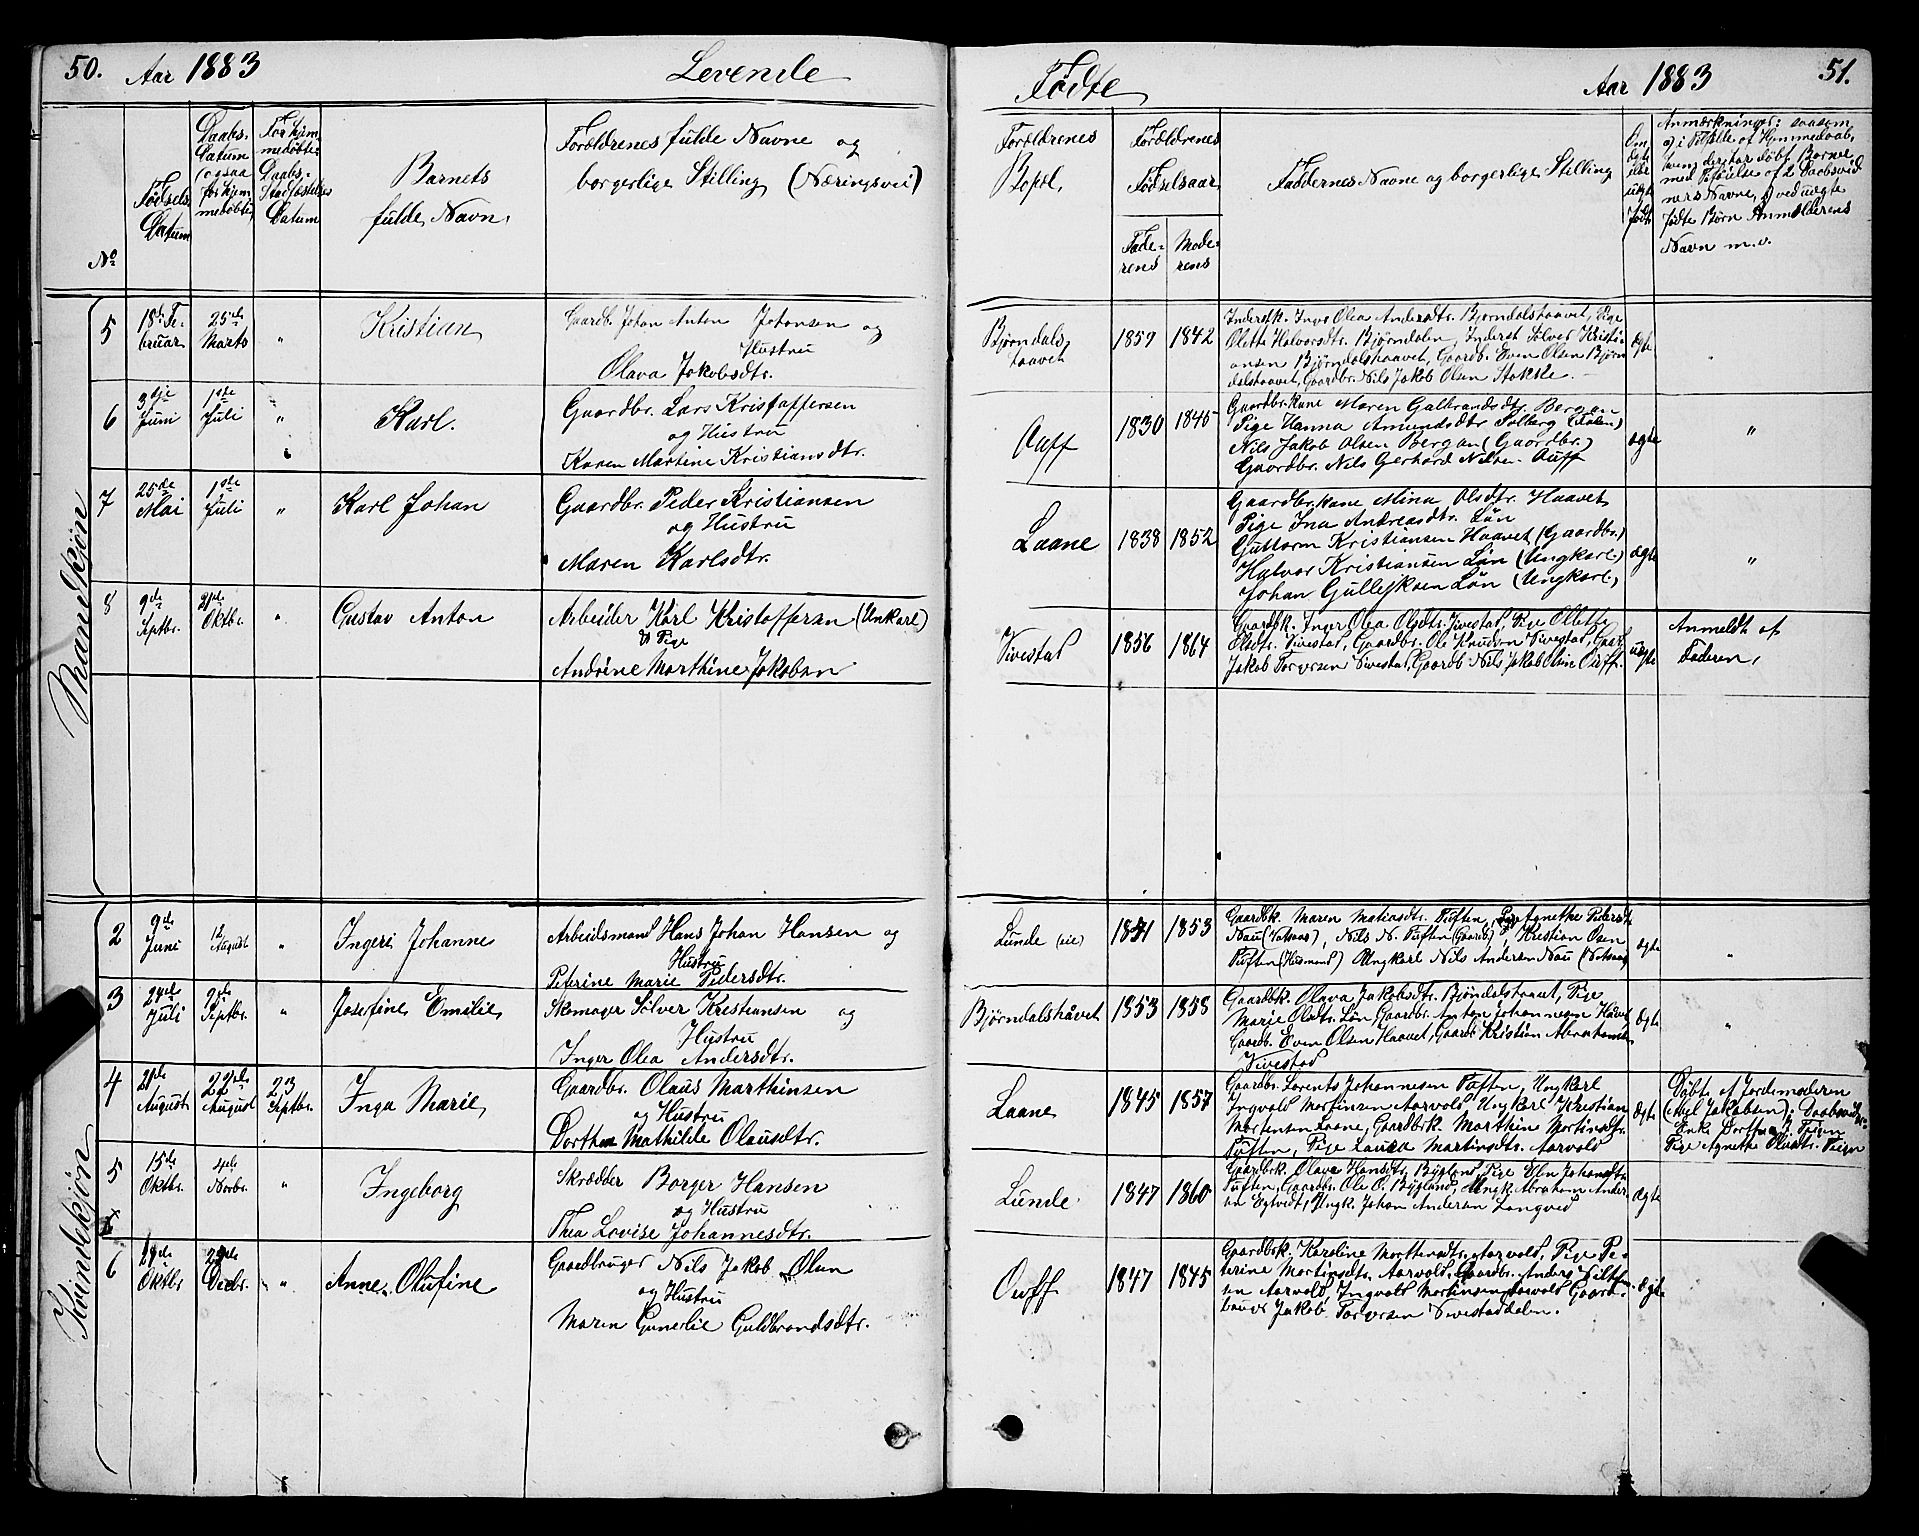 50. Aar 1883 Levende
No
Fødsels
Datum
Daabs-
Datum
(ogsaa
for hjem
medøbte)
For hjem
medøbte:
Daabs-
Stadfæstelses
Datum
Barnets
fulde Navn.
Forældrenes fulde Navne og
borgerlige Stilling (Næringsvei)
Mandkjøn
5 18de Fe-
bruar
25de
Marts
"
Kristian
Gaardb. Johan Anton Johansen og
Hustru
Olava Jakobsdtr.
6 3dje
Juni
1ste
Juli
"
Karl.
Gaardbr. Lars Kristoffersen
og Hustru
Karen Martine Kristiansdtr.
7 25de
Mai
1ste
Juli
"
Karl Johan
Gaardbr. Peder Kristiansen
og Hustru
Maren Karlsdtr.
8 9de
Septbr.
21de
Oktbr.
"
Gustav Anton
Arbeider Karl Kristoffersen (Unkarl)
& Pige
Andrine Marthine Jakobsen
Kvindekjøn
2 9de
Juni
12
August
"
Ingeri Johanne
Arbeidsmand Hans Johan Hansen og
Hustru
Peterine Marie Pedersdtr.
3 24de
Juli
2de
Septbr.
"
Josefine Emilie
Skomager Sølver Kristiansen og
Hustru
Inger Olea Andersdtr.
4 21de
August
22de
August
23
Septbr.
Inga Marie
Gaardbr. Olaus Marthinsen
og Hustru
Dorthea Mathilde Olausdtr.
5 15de
Oktbr.
4de
Novbr.
"
Ingeborg
Skrædder Borger Hansen
og Hustru
Thea Lovise Johannesdtr.
6
Oktbr
Decbr.
"
Anne Olufine
Gaardbruger Nils Jakob Olsen
og Hustru
Maren Gunerlie Guldbrandsdtr.
Fødte Aar 1883 51.
Forældrenes
Bopæl.
Forældrenes
Fødselsaar
Fade-
rens
Mode-
rens
Faddernes Navne og borgerlige Stilling
Om
ægte
eller
uægte
født
Anmærkninger: saasom
a) i Tilfælde af Hjemmedaab,
hvem der har døbt Barnet
med Tilføielse af 2 Daabsvid
ners Navne, b) ved uægte
fødte Børn Anmelderens
Navn m.v.
Bjørndals
haavet
1859 1842
Inderstk. Inger Olea Andersdtr. Bjørndalshaavet, Pige
Olette Halvorsdtr. Bjørndalen, Inderst Sølver Kristi-
ansen Bjørndalshaavet, Gaardb. Even Olsen Bjørn
dalshaavet, Gaardbr. Nils Jakob Olsen Stokke.
ægte "
Auff
1830 1845
Gaardbr.kone Maren Gulbrandsdtr. Bergan
Pige Hanna Amundsdtr Solberg (Foten)
Nils Jakob Olsen Bergan (Gaardbr.)
Gaardbr. Nils Gerhard Nilsen Auff
ægte "
Laane
1838 1852
Gaardbr.kone Mina Olsdtr. Haavet
Pige Ina Andreasdtr. Løn
Guttorm Kristiansen Haavet (Gaardbr.)
Halvor Kristiansen Løn (Ungkarl.)
Johan Gulleiksen Løn (Ungkarl.)
ægte "
Vivestad
1856 1864
Gaardbk. Inger Olea Olsdtr. Vivestad, Pige Olette
Olsdtr. Vivestad, Gaardbr. Ole Knudsen Vivestad, Gaardb.
Jakob Torersen Vivestad, Gaardb Nils Jakob Olsen Ouff.
uægte
Anmeldt af
Faderen,
Lunde (eie)
1841 1853
Gaardbk. Maren Matiasdtr. Tuften, Pige Agnethe Pedersdt
Nau, Nils N. Tuften (Gaardb), Kristian Osen
Tuften (Husmand) Ungkarl Nils Andersen Nau
ægte "
Bjørndalshåvet
1853 1858
Gaardbk. Olava Jakobsdtr. Bjøndalshaavet, Pige
Marie Olsdtr. Løn, Gaardbr. Anton Johannesen Håvet
Gaardb. Even Olsen Haavet, Gaardb. Kristian Abrahamsen
Vivestad
ægte "
Laane
1845 1857
Gaardbr. Lorents Johannesen Tuften, Ungkarl
Ingvald Mortinsen Aarvold, Ungkarl Kristian
Mortensen Laane, Gaardbrk. Marthin Mortinsdtr.
Tuften, Pige Laura Martinsdtr. Aarvold
ægte
Døbt af Jordemoderen
(Jakobsen), Daabsvidner
Enke Dorthea Teien
Pige Agnethe Olausdtr. Teien
Lunde.
1847 1860
Gaardbrk. Olava Hansdtr. Bygland, Pige Elin Johansdtr.
Tuften, Gaardbr. Ole O. Bygland, Ungk. Abraham Ander-
sen Egtvedt, Ungk. Johan Andersen Langved
ægte
Ouff
1847 1845
Gaardbrk. Karoline Morthensdtr. Aarvold, Pige Pe-
terine Martinsdtr. Aarvold, Gaardbr. Anders
en Aarvold, Ingvald Mortinsen Aarvold Gaard-
bruger Jakob Torersen Vivestaddalen.
ægte